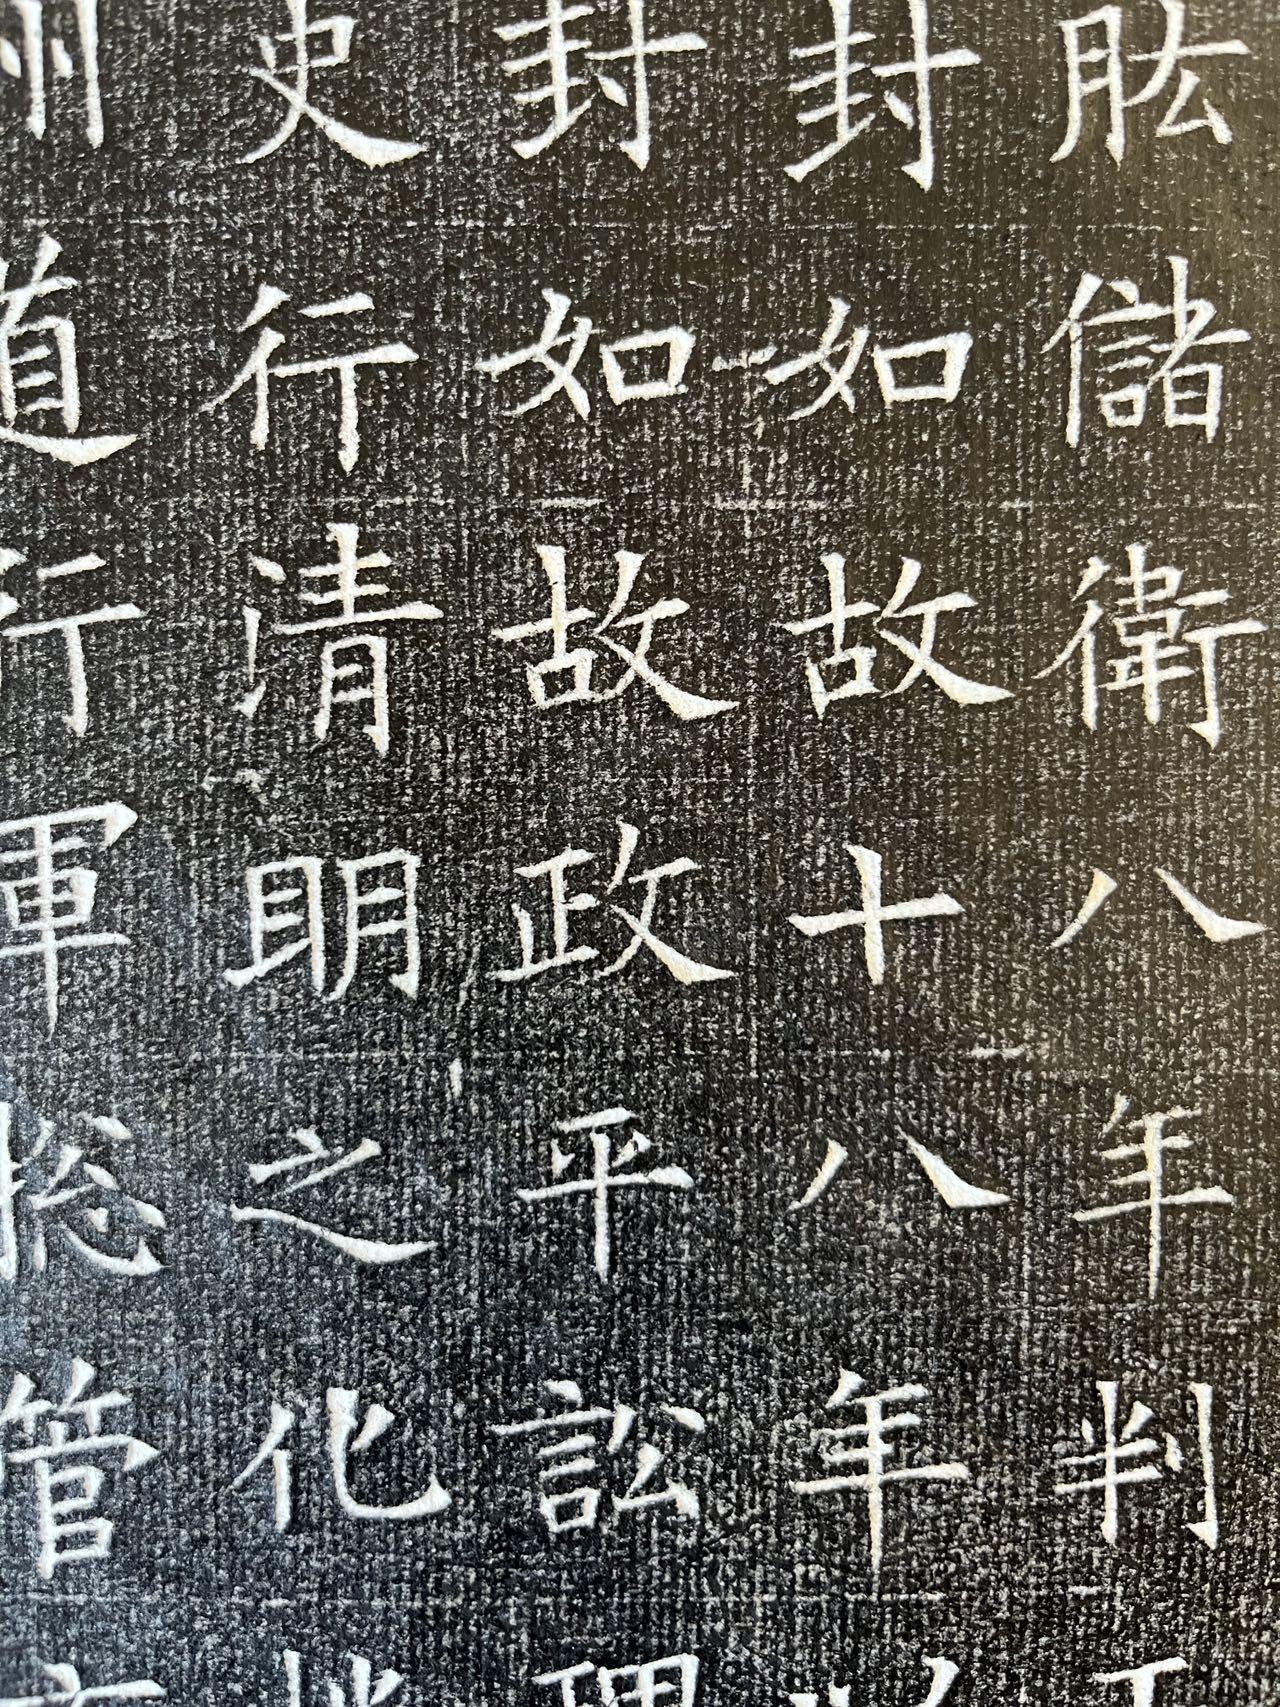 肱儲衛八年判
封如故十八年
封如故政平訟理
史行清明之化
州道行軍摠管